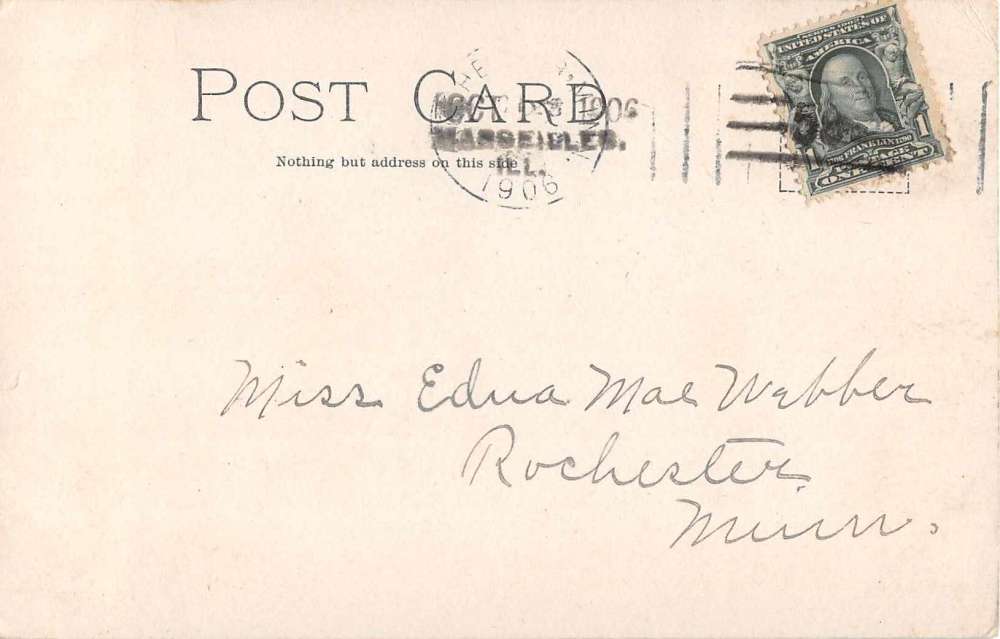 POST CARD
Nothing but address on this side
1906
MARSEILLES,
ILL.
1906
SERIES 1902
UNITED STATES OF
AMERICA
1
FRANKLIN
POSTAGE
ONE CENT
Miss Edna Mae Webber
Rochester
Minn.